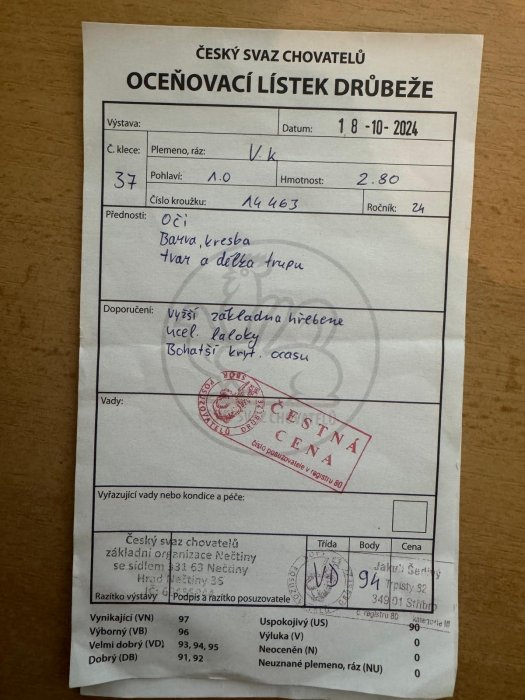 ČESKÝ SVAZ CHOVATELŮ
OCEŇOVACÍ LÍSTEK DRŮBEŽE
Výstava:
Datum: 18-10-2024
Č. klece: 37
Plemeno, ráz: V.k
Pohlaví: 1.0 Hmotnost: 2.80
Číslo kroužku: 14463 Ročník: 24
Přednosti: Oči
Barva, kresba
tvar a délka trupu
Doporučení: Vyšší základna hřebene
ucel. laloky
Bohatší kryt. ocasu
Vady:
SBOR POSUZOVATELŮ DRŮBEŽE
ČESTNÁ
CENA
číslo posuzovatele v registru 80
Vyřazující vady nebo kondice a péče:
Český svaz chovatelů
základní organizace Nečtiny
se sídlem 331 63 Nečtiny
Hrad Nečtiny 35
Razítko výstavy
Podpis a razítko posuzovatele
Třída Body Cena
VD 94
Trpísty 32
349 01 Stříbro
č. registru 80 kategorie
Vynikající (VN) 97
Výborný (VB) 96
Velmi dobrý (VD) 93, 94, 95
Dobrý (DB) 91, 92
Uspokojivý (US) 90
Výluka (V) 0
Neoceněn (N) 0
Neuznané plemeno, ráz (NU) 0